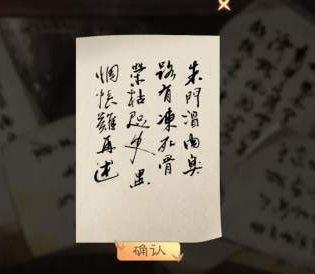 朱門酒肉臭
路有凍死骨
榮枯咫尺異
惆悵難再述
确认